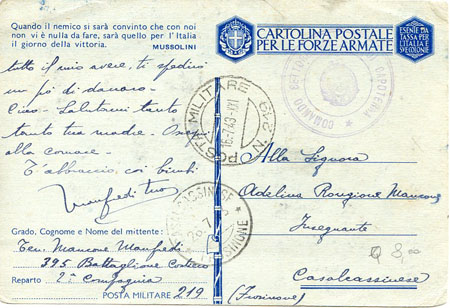 Quando il nemico si sarà convinto che con noi
non vi è nulla da fare, sarà quello per l'Italia
il giorno della vittoria. MUSSOLINI
tutto il mio avere, ti spedirò
un pò di danaro.
Ciao - Salutami tanto
tanto tua madre.
alla comare.
T'abbraccio, coi bimbi
Manfredi tuo
Grado, Cognome e Nome del mittente:
Ten. Mancone Manfredi
395 Battaglione Costiero
Reparto 2ª Compagnia
POSTA MILITARE 219
CARTOLINA POSTALE
PER LE FORZE ARMATE
ESENTE DA
TASSA PER
L'ITALIA E
SVE COLONIE
POSTA MILITARE N. 219
16-7-43-XXI
COMANDO
Alla Signora
Adelina Rongione Mancone
Insegnante
Casalcassinese
(Frosinone)